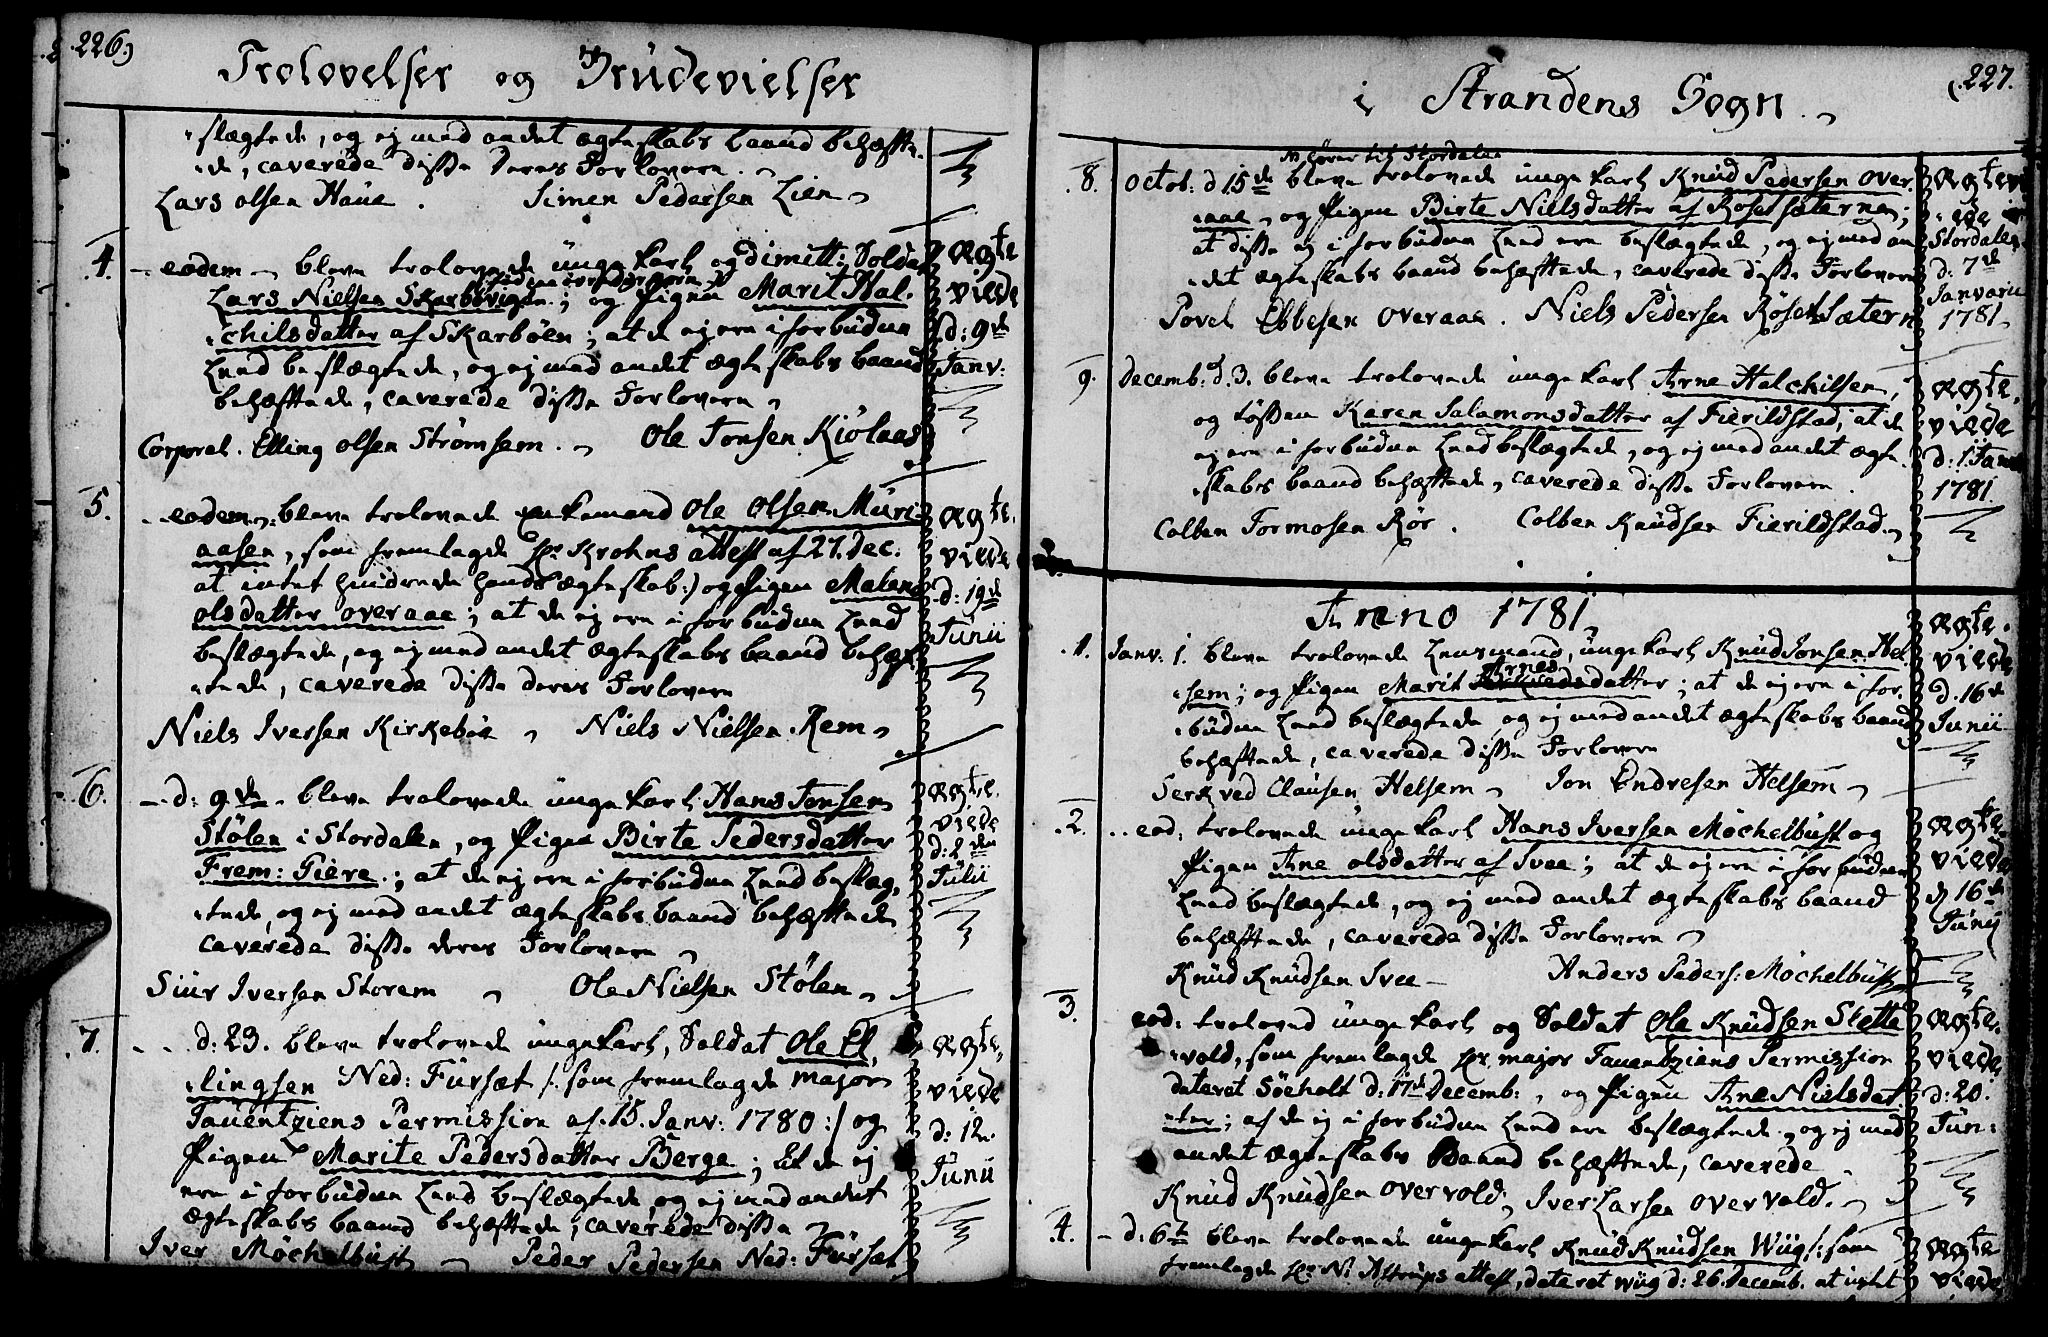 226
Trolovelser og Brüdevielser
slægtede, og ej med andet ægteskabs baand behæfte-
de, caverede disse deres Forlovere.
Lars Olsen Haüe. Simen Pedersen Lien
4. eodem bleve trolovede ünge karl og dimitt: Soldat
Lars Nielsen Skarbøvigen; og Pigen Marit Hal-
chilsdatter af Skarbøen; at de ej ere i forbüden
Leed beslægtede, og ej med andet ægteskabs baand
behæftede, caverede disse Forlovere
Corporal. Elling Olsen Strømsem. Ole Jonsen Kiølaas
Ægte
viede
d: 9de
Janv:
5. eodem bleve trolovede enkemand Ole Olsen Müri-
aasen, som fremlagde Hr Krohns attest af 27. Dec.
at intet hindrede hands ægteskab:) og Pigen Malene
Olsdatter Overaae; at de ej ere i forbüden Leed
beslægtede, og ej med andet ægteskabs baand behæf-
tede, caverede disse deres Forlovere
Niels Iversen Kirkebøe Niels Nielsen Rem
Ægte
viede
d: 19de
Junii
6. d: 9de bleve trolovede ünge karl Hans Jonsen
Stølen i Stordalen, og Pigen Birte Pedersdatter
Frem: Giere; at de ej ere i forbüden Leed beslæg-
tede, og ej med andet ægteskabs baand behæftede
caverede disse deres Forlovere
Siur Iversen Storem Ole Nielsen Stølen
Ægte
viede
d: 2den
Julii
7. d: 23. bleve trolovede üngekarl, Soldat Ole El-
lingsen Ned: Fürsæt /: som fremlagde major
Tauentziens Permission af 15. Janv: 1780 :/ og
Pigen Marite Pedersdatter Berge; at de ej
ere i forbüden Leed beslægtede, og ej med andet
ægteskabs baand behæftede, caverede disse
Iver Möchelbust Peder Pedersen Ned: Fürsæt
Ægte
viede
d: 12.
Junii
227.
i Strandens Sogn.
hører til Stordalen
8. Octob: d 15de bleve trolovede ünge karl Knüd Pedersen Over-
aae, og Pigen Birte Nielsdatter af Rosetsæterne;
at disse ej i forbüden Leed ere beslægtede, og ej med an-
det ægteskabs baand behæftede, caverede disse Forlovere
Povel Ebbesen Overaae. Niels Pedersen RøsetSætern
Ægtevi-
ede i
Stordalen
d: 7de
Januarii
1781
9. Decemb: d. 3. bleve trolovede ünge karl Arne Halchilsen,
og tøsen Karen Salamonsdatter af Fierildstad, at de
ej ere i forbüden Leed beslægtede, og ej med andet ægte-
skabs baand behæftede, caverede disse Forlovere.
Colben Tormosen Rør. Colben Knüdsen Fierildstad.
Ægte
viede
d: 1 Janv
1781.
Anno 1781
1. Janv: 1. bleve trolovede Lensmand, ünge karl Knüd Jonsen Hel-
sem; og Pigen Marit Arnes datter; at de ej ere i for-
büden Leed beslægtede, og ej med andet ægteskabs baand
behæftede, caverede disse Forlovere
Serkved Clausen Helsem Jon Endresen Helsem
Ægte
viede
d. 16de
Junii
2. eod: trolovede ünge karl Hans Iversen Möchelbust og
Pigen Ane Olsdatter af Ivee; at de ej ere i forbüden
Leed beslægtede, og ej med andet ægteskabs baand
behæftede, caverede disse Forlovere
Knüd Knüdsen Ivee Anders Peders: Möchelbust
Ægte
viede
d 16de
Junij
3. eod: troloved ünge karl og Soldat Ole Knüdsen Stette
vold, som fremlagde Hr. major Tauentziens Permission
dateret Søeholt d: 17de Decemb:, og Pigen Ane Nielsdat-
ter; af de ej i forbüden Leed ere beslægtede, og ej med
andet ægteskabs Baand behæftede, caverede
Knüd Knüdsen Overvold, Iver Larsen Overvold.
Ægte
viede
d: 20.
Jun:
4. d: 6te bleve trolovede ünge karl Knüd Knüdsen Wiig /: som
fremlagde Hr N: Astrups attest, dateret Wiig d: 26. Decemb. at intet
Ægte
viede